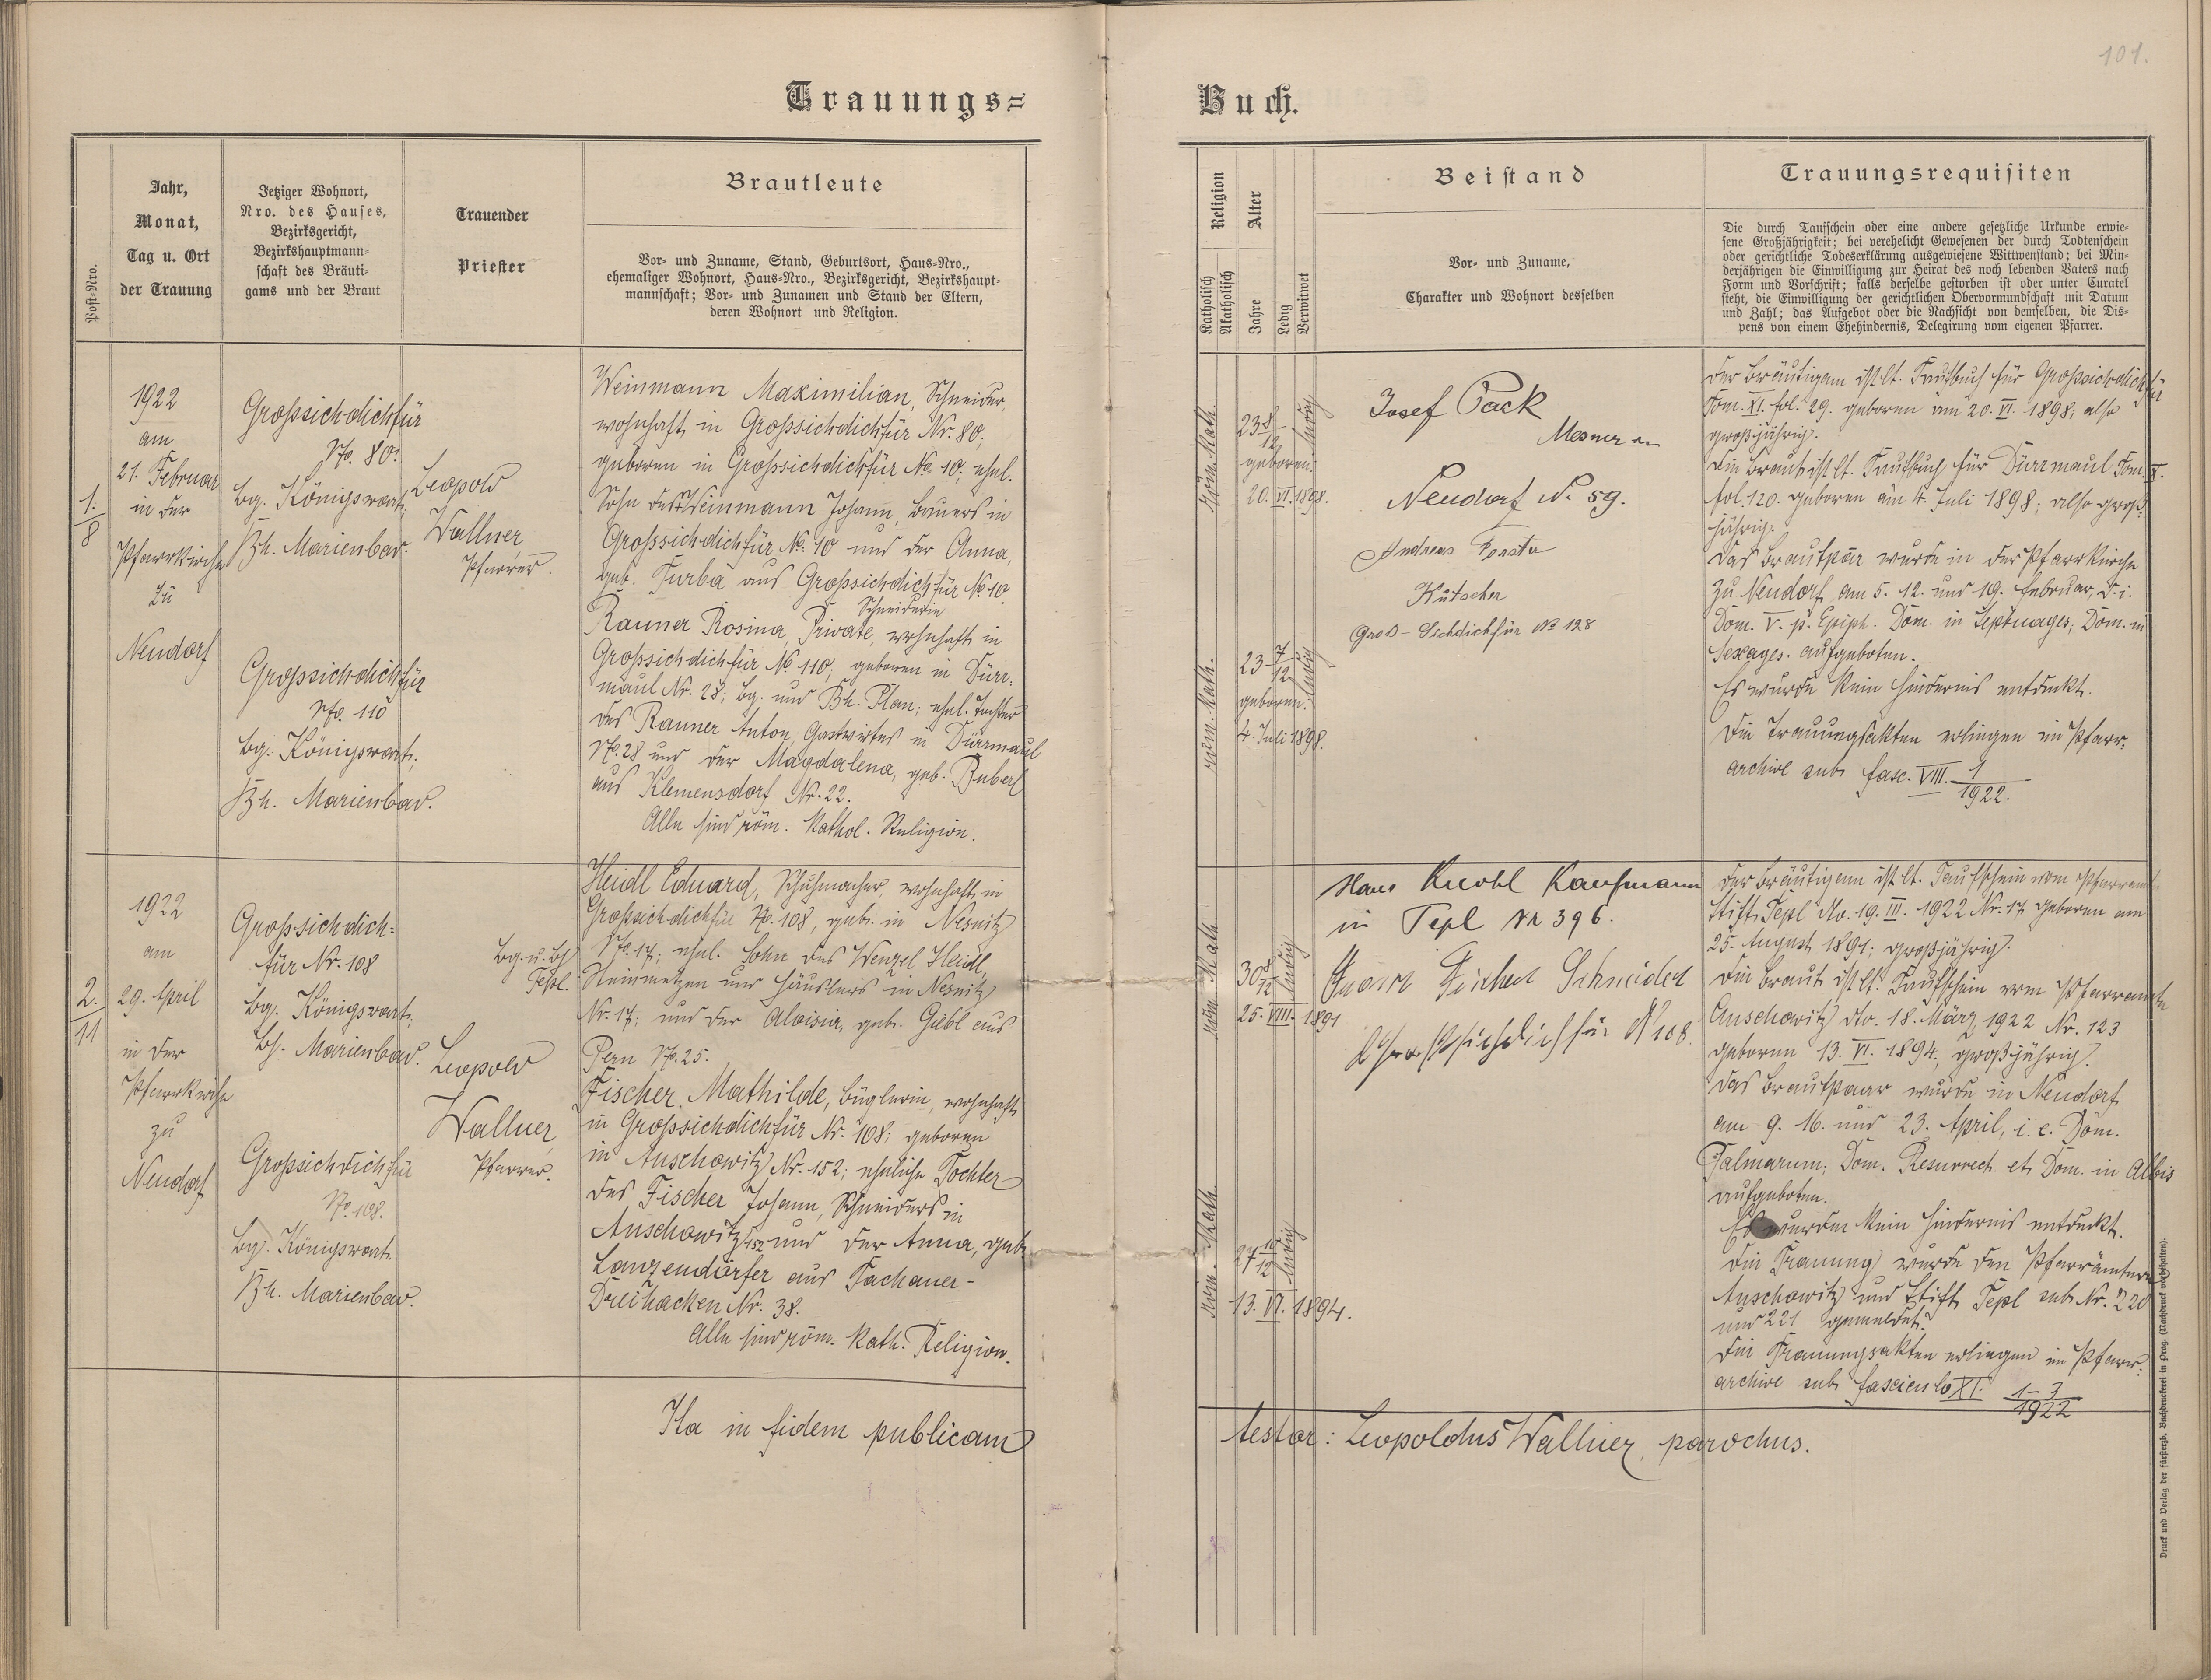 101.
Trauungs=
Buch.
Post-Nro.
Jahr,
Monat,
Tag u. Ort
der Trauung
Jetziger Wohnort,
Nro. des Hauses,
Bezirksgericht,
Bezirkshauptmann-
schaft des Bräuti-
gams und der Braut
Trauender
Priester
Brautleute
Vor- und Zuname, Stand, Geburtsort, Haus-Nro.,
ehemaliger Wohnort, Haus-Nro., Bezirksgericht, Bezirkshaupt-
mannschaft; Vor- und Zunamen und Stand der Eltern,
deren Wohnort und Religion.
Religion
Katholisch
Akatholisch
Alter
Jahre
Ledig
Verwitwet
Beistand
Vor- und Zuname,
Charakter und Wohnort desselben
Trauungsrequisiten
Die durch Taufschein oder eine andere gesetzliche Urkunde erwie-
sene Großjährigkeit; bei verehelicht Gewesenen der durch Todtenschein
oder gerichtliche Todeserklärung ausgewiesene Wittwenstand; bei Min-
derjährigen die Einwilligung zur Heirat des noch lebenden Vaters nach
Form und Vorschrift; falls derselbe gestorben ist oder unter Curatel
steht, die Einwilligung der gerichtlichen Obervormundschaft mit Datum
und Zahl; das Aufgebot oder die Nachsicht von demselben, die Dis-
pens von einem Ehehindernis, Delegirung vom eigenen Pfarrer.
1.
8
1922
am
21. Februar
in der
Pfarrkirche
zu
Neudorf
Grossichdichfür
No. 80.
bg. Königswart;
Bh. Marienbad.
Grossichdichfür
No. 110
bg. Königswart;
Bh. Marienbad.
Leopold
Wallner
Pfarrer.
Weinmann Maximilian, Schneider,
wohnhaft in Grossichdichfür Nr. 80;
geboren in Grossichdichfür No. 10; ehel.
Sohn des Weinmann Johann, Bauers in
Grossichdichfür No. 10 und der Anna,
geb. Turba aus Grossichdichfür No 10.
Schneiderin
Rauner Rosina, Private, wohnhaft in
Grossichdichfür No 110; geboren in Dürr-
maul Nr. 28; bg. und Bh. Plan; ehel. Tochter
des Rauner Anton, Gastwirtes in Dürrmaul
No. 28 und der Magdalena, geb.
aus Klemensdorf Nr. 22.
Alle sind röm. kathol. Religion.
Röm. Kath.
23 8/12
ledig
geboren:
20. VI. 1898.
röm. Kath.
23 7/12
ledig
geboren:
4. Juli 1898.
Josef Pack
Mesner in
Neudorf N. 59.
Andreas
Kutscher
Groß-Sichdichfür No 128
Der Bräutigam ist lt. Taufbuch für Grossichdichfür
Tom. XI. fol. 29. geboren am 20. VI. 1898, also
großjährig.
Die Braut ist lt. Taufbuch für Dürrmaul Tom. X.
fol. 120. geboren am 4. Juli 1898; also groß-
jährig.
Das Brautpaar wurde in der Pfarrkirche
zu Neudorf am 5. 12. und 19. Februar, d. i.
Dom. V. p. Epiph. Dom. in Septuages; Dom. in
Sexages. aufgeboten.
Es wurde kein Hindernis entdeckt.
Die Trauungsakten erliegen im Pfarr-
archive sub fasc. VIII. 1
1922.
2.
11
1922
am
29. April
in der
Pfarrkirche
zu
Neudorf
Grossichdich=
für Nr. 108
bg. Königswart,
bh. Marienbad.
Grossichdichfür
No. 108.
bg. Königswart.
Bh. Marienbad.
Leopold
Wallner,
Pfarrer.
Heidl Eduard, Schuhmacher, wohnhaft in
Grossichdichfür No. 108, geb. in Nesnitz
Bg. u. bh
No. 17; ehel. Sohn des Wenzel Heidl,
Tepl.
Steinmetzen und Häuslers in Nesnitz
Nr. 17; und der Aloisia, geb. Gabl aus
Pern No. 25.
Fischer Mathilde, Büglerin, wohnhaft
in Grossichdichfür Nr. 108; geboren
in Auschowitz Nr. 152; eheliche Tochter
des Fischer Johann, Schneiders in
Auschowitz 152 und der Anna, geb.
Lanzendörfer aus Tachauer-
Dreihacken Nr. 38.
Alle sind röm. kath. Religion.
röm. Kath.
30 8/12
ledig
25. VIII. 1891
röm. Kath.
27 10/12
ledig
13. VI. 1894.
Hans Knobl Kaufmann
in Tepl No 396.
Schneider
Großsichdichfür N 108.
Der Bräutigam ist lt. Taufschein vom Pfarramt
Stift Tepl dto. 19. III. 1922 Nr. 17 geboren am
25. August 1891; großjährig.
Die Braut ist lt. Taufschein vom Pfarramte
Auschowitz dto. 18. März 1922 Nr. 123
geboren 13. VI. 1894, großjährig.
Das Brautpaar wurde in Neudorf
am 9. 16. und 23. April, i. e. Dom.
Palmarum; Dom. Resurrect. et Dom. in Albis
aufgeboten.
Es wurden kein Hindernis entdeckt.
Die Trauung wurde den Pfarrämtern
Auschowitz und Stift Tepl sub Nr. 220
und 221 gemeldet.
Die Trauungsakten erliegen im Pfarr-
archive sub fasciculo XI. 1-7
1922
Ita in fidem publicam
testor: Leopoldus Wallner, parochus.
Druck und Verlag der fürsterzb. Buchdruckerei in Prag. (Nachdruck vorbehalten).